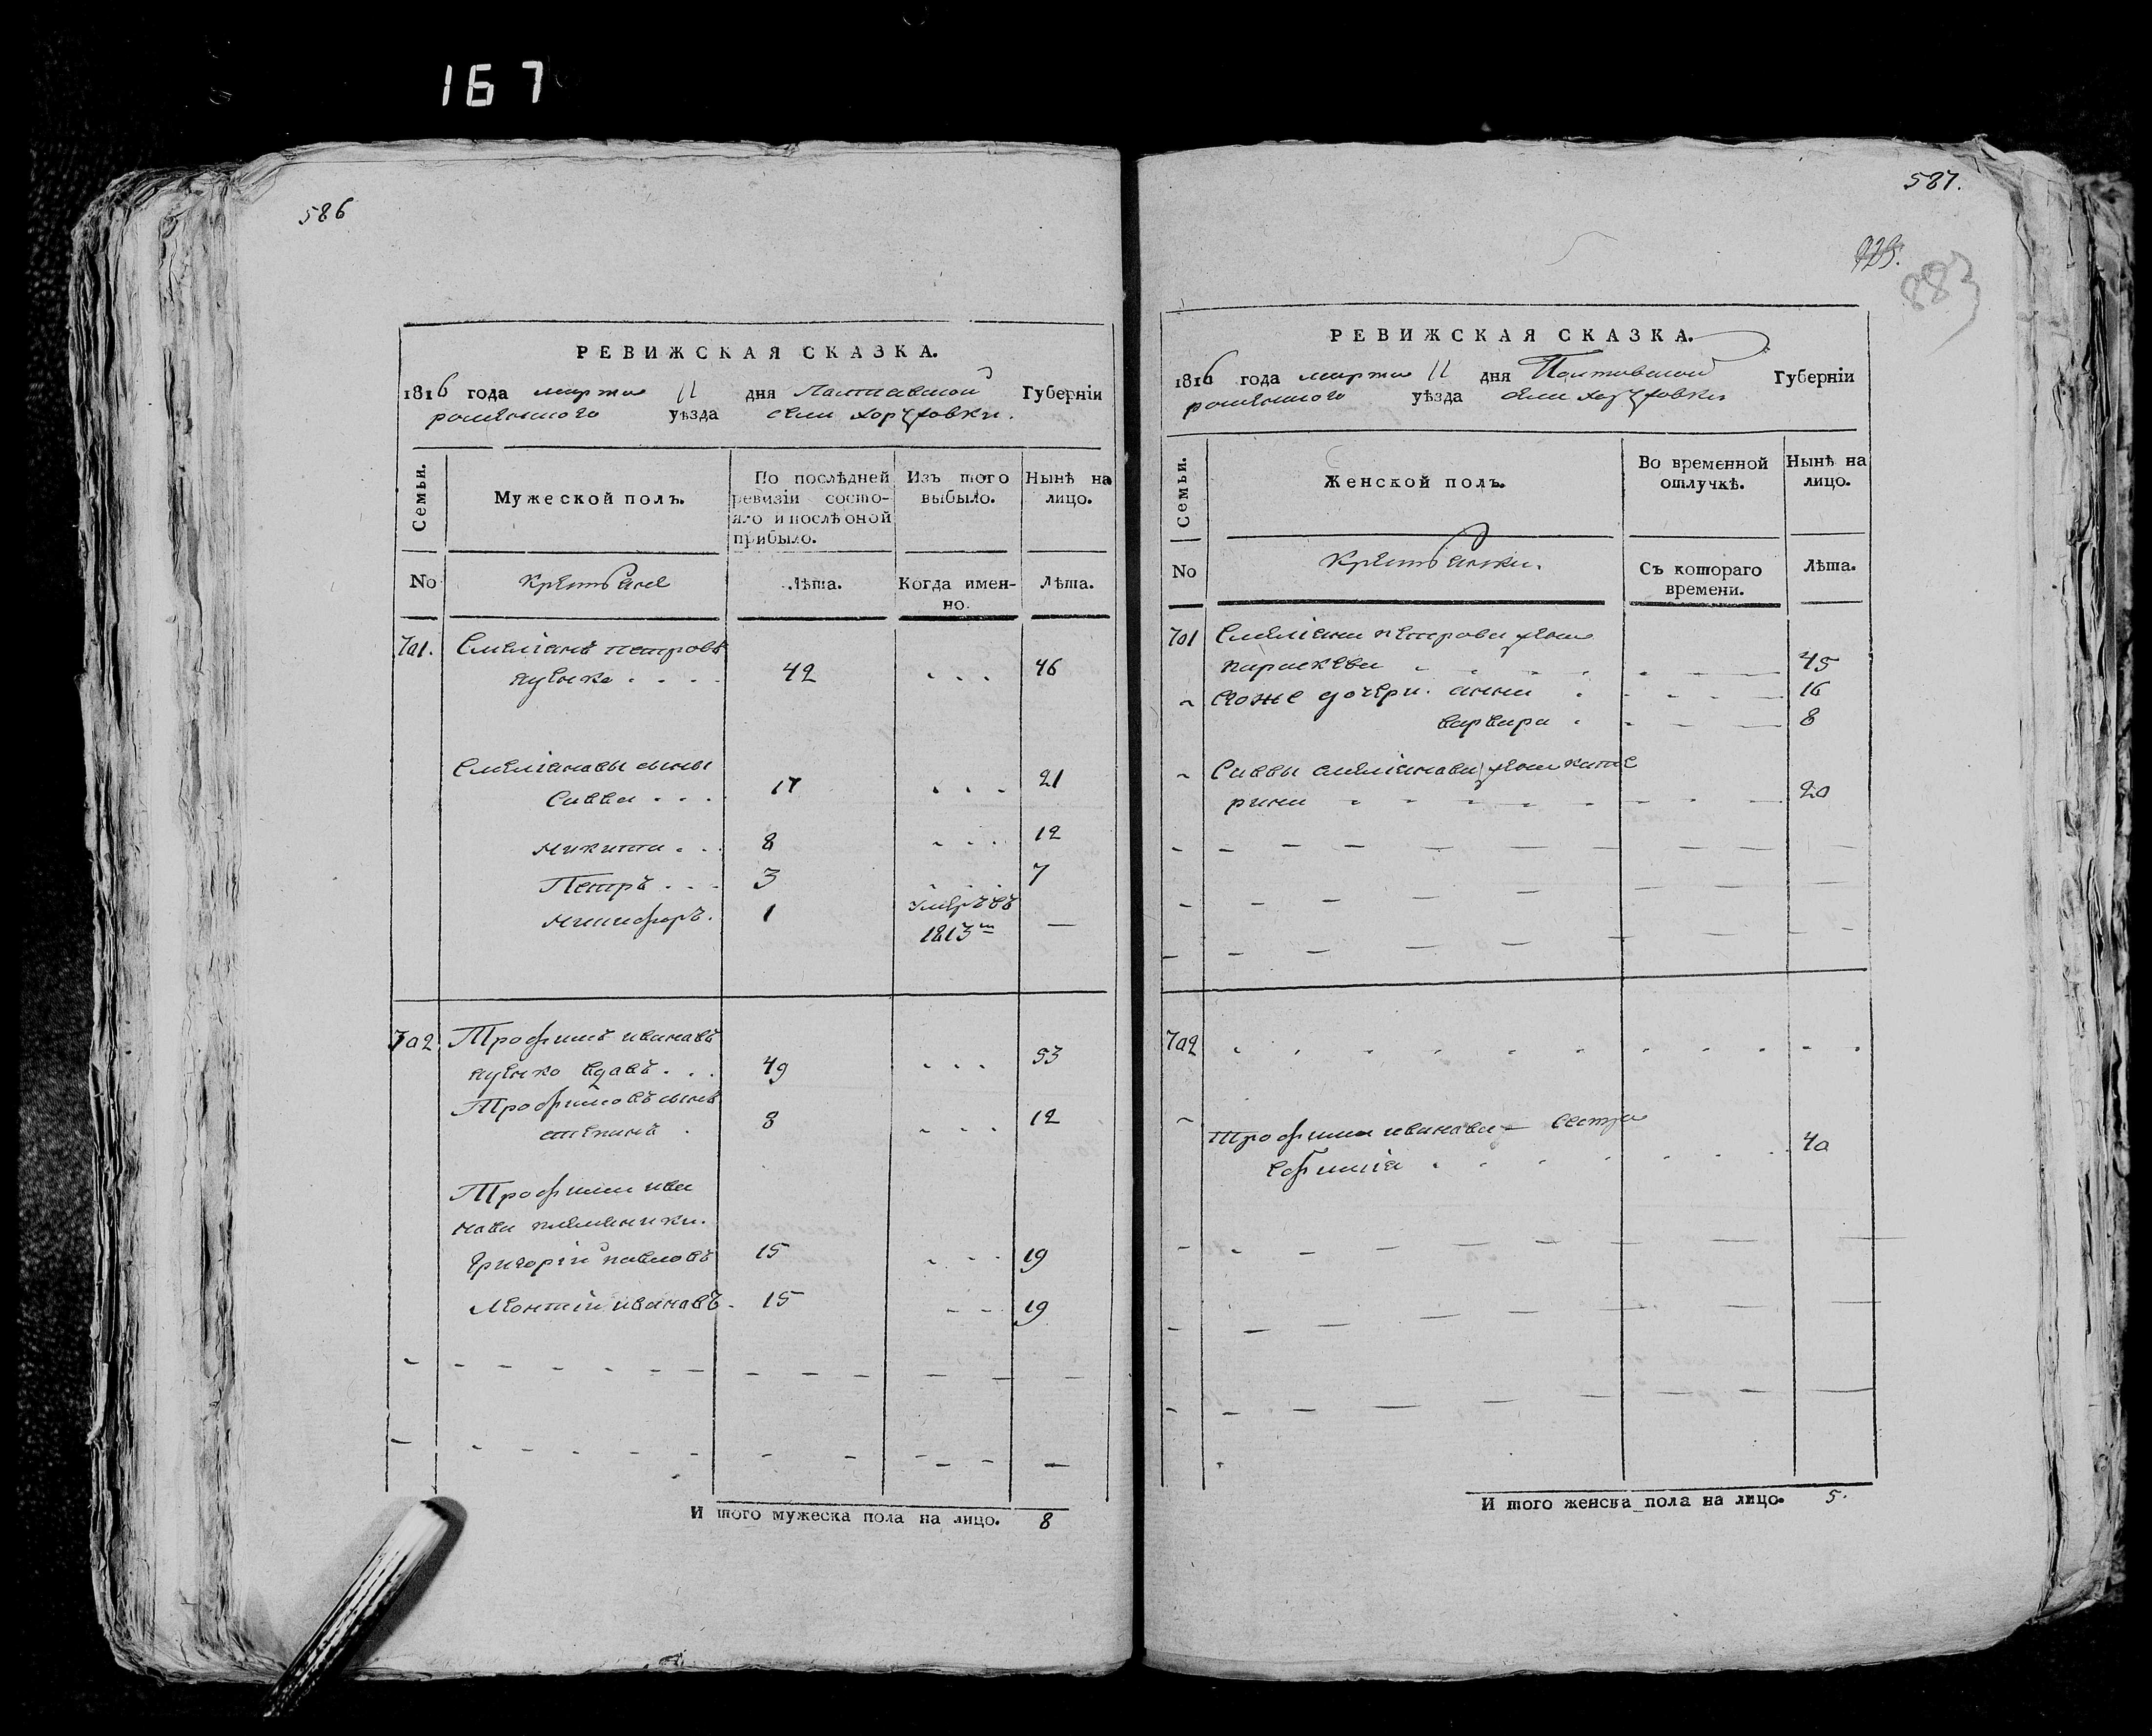 167
586
РЕВИЖСКАЯ СКАЗКА.
1816 года марта 11 дня Полтавской Губерніи
роменского уѣзда села
Семьи.
Мужеской полъ.
По послѣдней ревизіи состояло и послѣ оной прибыло.
Изъ того выбыло.
Нынѣ на лицо.
No
Крестьяне
Лѣта.
Когда именно.
Лѣта.
701. Емеліанъ петровъ
42 . . . 46
Емеліановы сыны
Савва . . . 17 . . . 21
никита . . 8 . . . 12
Петръ . . . 3 . . . 7
никифоръ. 1 умеръ въ
1813м —
702 Трофимъ ивановъ
вдовъ . . . 49 . . . 53
Трофимовъ сынъ
степанъ . 8 . . . 12
Трофима ива
нова племенники.
Григорій павловъ 15 . . . 19
Леонтій ивановъ. 15 - - - 19
И того мужеска пола на лицо. 8
587.
883
РЕВИЖСКАЯ СКАЗКА.
1816 года марта 11 дня Полтавской Губерніи
роменского уѣзда села
Семьи.
Женской полъ.
Во временной отлучкѣ.
Нынѣ на лицо.
No
Крестьянки.
Съ котораго времени.
Лѣта.
701 Емеліана петрова жена
параскева 45
Егоже дочери. анна 16
варвара 8
Саввы емеліанова жена кате
рина 20
702
Трофима иванова — сестра
Ефимія 40
И того женска пола на лицо. 5.